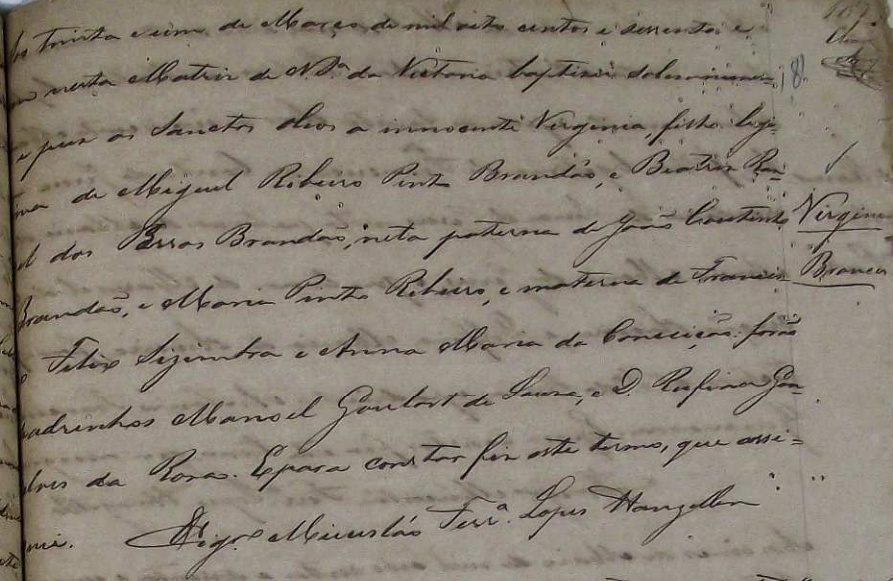 trinta e um de Março de mil oito centos e sessenta e
nesta Matriz de N. Sª da Victoria baptizei solemnemen=
e puz os Sanctos oleos a innocente Virginia, filha legi-
ma de Miguel Ribeiro Pinto Brandão, e Beatriz Ra-
el dos Passos Brandão, neta paterna de João Coutinho
Brandão, e Maria Pinto Ribeiro, e materna de Francis-
Felix e Anna Maria da Conceição: forão
padrinhos Manoel Goulart de Souza, e D. Rufina Gon=
alves da Rosa. E para constar fiz este termo, que assi=
nei.
Vigrº Ferrª Lopes
8
Virginia
Branca